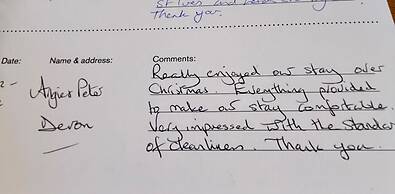 St Ives
Thank you.
Date: Name & address: Comments:
Really enjoyed our stay over
Christmas. Everything provided
Peter to make our stay comfortable.
Devon Very impressed with the Standar
of cleanliness. Thank you.